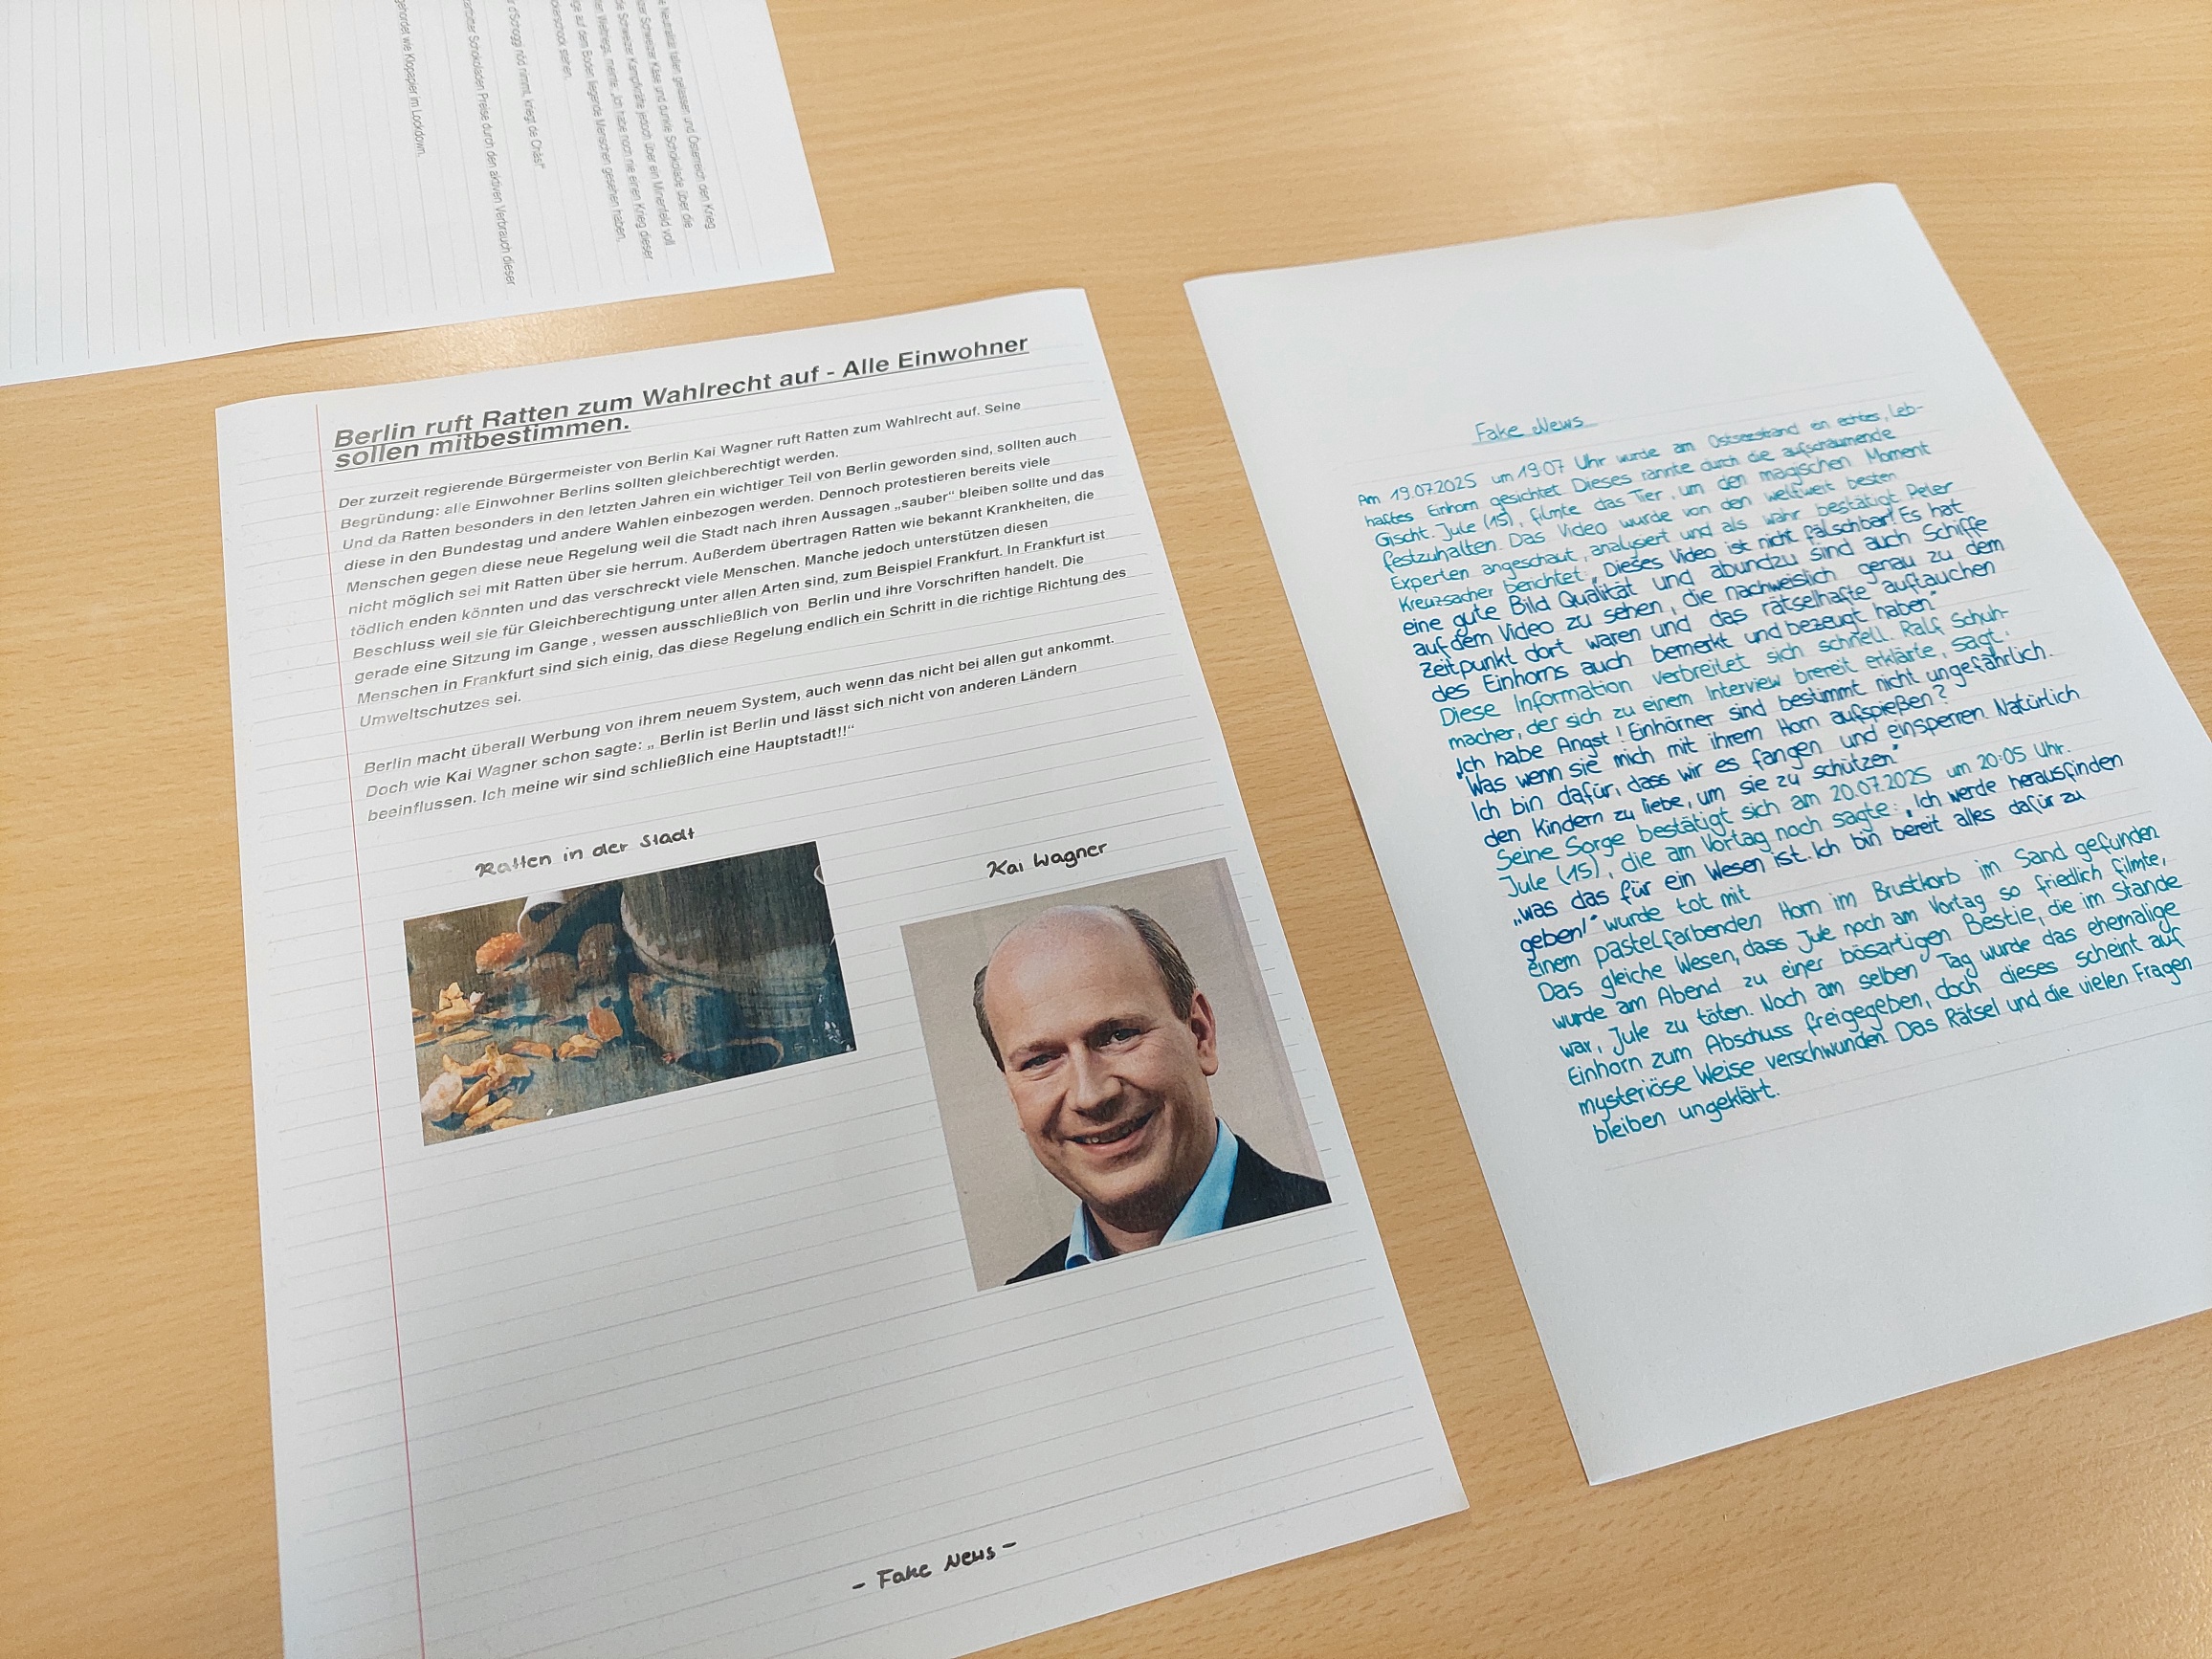 e Neutralität fallen gelassen und Österreich den Krieg
Schweizer Käse und dunkle Schokolade über die
die Schweizer Kampfkräfte jedoch über ein Minenfeld voll
meinte: „Ich habe noch nie einen Krieg dieser
auf dem Boden liegende Menschen gesehen haben,
stehen.
d'Schoggi nöd nimmt, kriegt de Chäs!"
Schokoladen Preise durch den aktiven Verbrauch dieser
gehortet wie Klopapier im Lockdown.
Berlin ruft Ratten zum Wahlrecht auf - Alle Einwohner
sollen mitbestimmen.
Der zurzeit regierende Bürgermeister von Berlin Kai Wagner ruft Ratten zum Wahlrecht auf. Seine
Begründung: alle Einwohner Berlins sollten gleichberechtigt werden.
Und da Ratten besonders in den letzten Jahren ein wichtiger Teil von Berlin geworden sind, sollten auch
diese in den Bundestag und andere Wahlen einbezogen werden. Dennoch protestieren bereits viele
Menschen gegen diese neue Regelung weil die Stadt nach ihren Aussagen „sauber“ bleiben sollte und das
nicht möglich sei mit Ratten über sie herrum. Außerdem übertragen Ratten wie bekannt Krankheiten, die
tödlich enden könnten und das verschreckt viele Menschen. Manche jedoch unterstützen diesen
Beschluss weil sie für Gleichberechtigung unter allen Arten sind, zum Beispiel Frankfurt. In Frankfurt ist
gerade eine Sitzung im Gange , wessen ausschließlich von Berlin und ihre Vorschriften handelt. Die
Menschen in Frankfurt sind sich einig, das diese Regelung endlich ein Schritt in die richtige Richtung des
Umweltschutzes sei.
Berlin macht überall Werbung von ihrem neuem System, auch wenn das nicht bei allen gut ankommt.
Doch wie Kai Wagner schon sagte: „ Berlin ist Berlin und lässt sich nicht von anderen Ländern
beeinflussen. Ich meine wir sind schließlich eine Hauptstadt!!“
Ratten in der Stadt
Kai Wagner
- Fake News -
Fake News
Am 19.07.2025 um 19:07 Uhr wurde am Ostseestrand en echtes, leb-
haftes Einhorn gesichtet. Dieses rannte durch die aufschäumende
Gischt. Jule (15), filmte das Tier, um den magischen Moment
festzuhalten. Das Video wurde von den weltweit besten
Experten angeschaut, analysiert und als wahr bestätigt. Peter
Kreuzsacher berichtet: „Dieses Video ist nicht fälschbar! Es hat
eine gute Bild Qualität und abundzu sind auch Schiffe
auf dem Video zu sehen, die nachweislich genau zu dem
Zeitpunkt dort waren und das rätselhafte auftauchen
des Einhorns auch bemerkt und bezeugt haben.“
Diese Information verbreitet sich schnell. Ralf Schuh-
macher, der sich zu einem Interview brereit erklärte, sagt:
„Ich habe Angst! Einhörner sind bestimmt nicht ungefährlich.
Was wenn sie mich mit ihrem Horn aufspießen?
Ich bin dafür, dass wir es fangen und einsperren. Natürlich
den Kindern zu liebe, um sie zu schützen“
Seine Sorge bestätigt sich am 20.07.2025 um 20:05 Uhr.
Jule (15), die am Vortag noch sagte: „Ich werde herausfinden
„was das für ein Wesen ist. Ich bin bereit alles dafür zu
geben!“ wurde tot mit
einem pastelfarbenden Horn im Brustkorb im Sand gefunden.
Das gleiche Wesen, dass Jule noch am Vortag so friedlich filmte,
wurde am Abend zu einer bösartigen Bestie, die im Stande
war, Jule zu töten. Noch am selben Tag wurde das ehemalige
Einhorn zum Abschuss freigegeben, doch dieses scheint auf
mysteriöse Weise verschwunden. Das Rätsel und die vielen Fragen
bleiben ungeklärt.